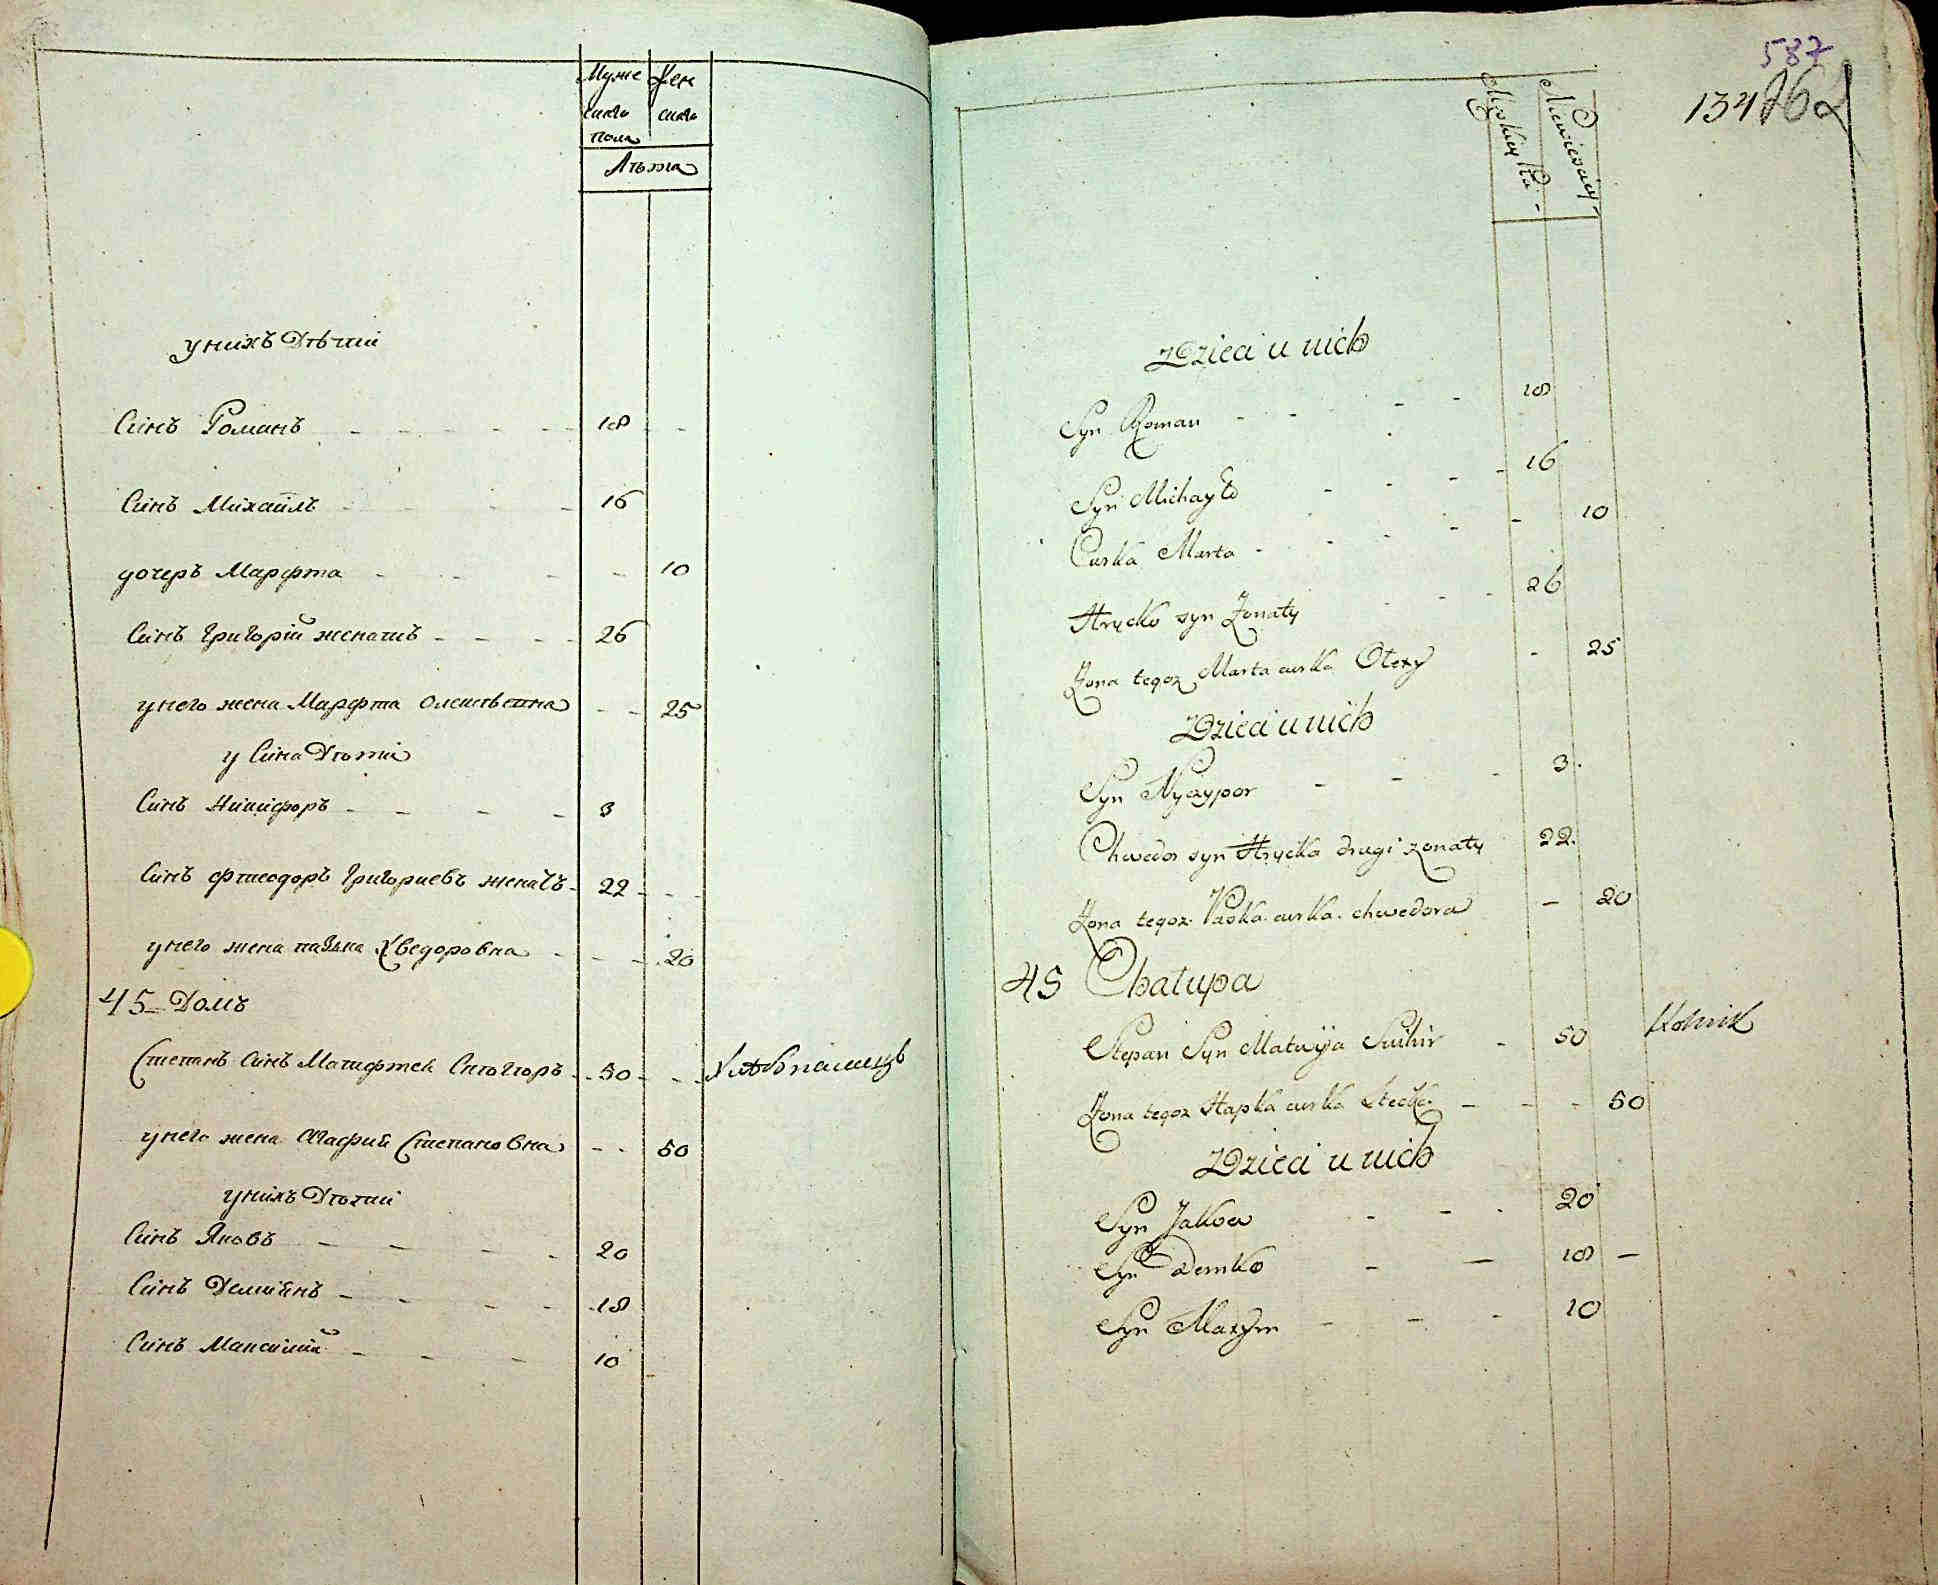 Муже
ского
пола
Жен
ского
Лѣта
у нихъ Дѣти
Синъ Романъ 18
Синъ Михайлъ 16
дочеръ Марфта 10
Синъ Григорій женатъ 26
у него жена Марфта 25
у Сина Дѣти
Синъ Никифоръ 3
Синъ Григориевъ женатъ 22
у него жена Хведоровна 20
45 Домъ
Степанъ Синъ 50 Хлѣбпашецъ
у него жена Агафия Степановна 50
у нихъ Дѣти
Синъ Яковъ 20
Синъ Демиянъ 18
Синъ Максимъ 10
587
134
262
Męskey Płci
Niewieściey
Dzieci u nich
Syn Roman 18
Syn Michayło 16
Curka Marta 10
Hrycko syn Zonaty 26
Zona tegoz Marta curka Olexy 25
Dzieci u nich
Syn Nyczypor 3
Chwedor syn Hrycka drugi zonaty 22
Zona tegoz curka chwedora 20
45 Chałupa
Stepan Syn Matwija 50 Rolnik
Zona tegoz Hapka curka Stecka 50
Dzieci u nich
Syn Jakow 20
Syn Demko 18
Syn Maxym 10